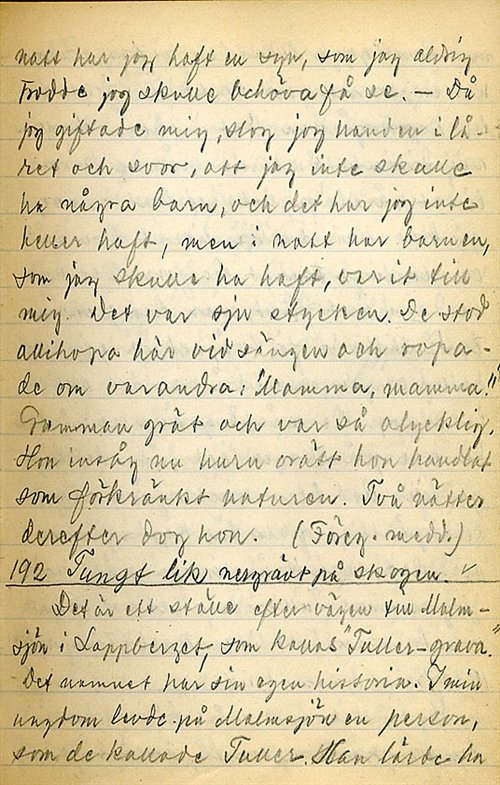 natt har jag haft en syn, som jag aldrig
trodde jag skulle behöva få se. — Då
jag giftade mig, slog jag handen i lå-
ret och svor, att jag inte skulle
ha några barn, och det har jag inte
heller haft, men i natt har barnen,
som jag skulle ha haft, varit till
mig. Det var sju stycken. De stod
allihopa här vid sängen och ropa-
de om varandra: "Mamma, mamma!"
Gumman grät och var så olycklig.
Hon insåg nu huru orätt hon handlat
som förkränkt naturen. Två nätter
derefter dog hon. (Föreg. medd.)
192 Tungt lik nergrävt på skogen.
Det är ett ställe efter vägen till Malm-
sjön i Lappberget, som kallas "Tuller-grava."
Det namnet har sin egen historia. I min
ungdom levde på Malmsjön en person,
som de kallade Tuller. Han lärde ha